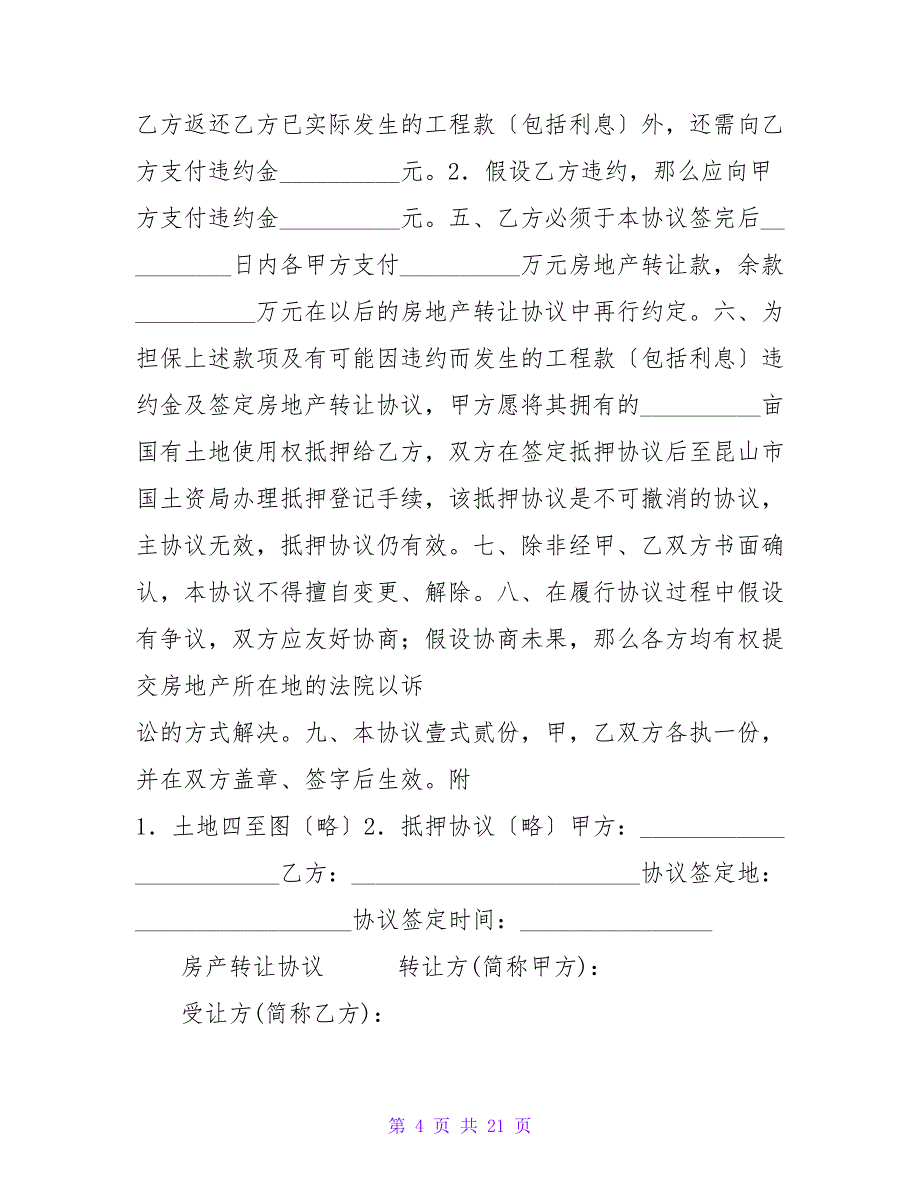 乙方返还乙方已实际发生的工程款〔包括利息〕外，还需向乙
方支付违约金__________元。2．假设乙方违约，那么应向甲
方支付违约金__________元。五、乙方必须于本协议签完后__
________日内各甲方支付__________万元房地产转让款，余款
__________万元在以后的房地产转让协议中再行约定。六、为
担保上述款项及有可能因违约而发生的工程款〔包括利息〕违
约金及签定房地产转让协议，甲方愿将其拥有的__________亩
国有土地使用权抵押给乙方，双方在签定抵押协议后至昆山市
国土资局办理抵押登记手续，该抵押协议是不可撤消的协议，
主协议无效，抵押协议仍有效。七、除非经甲、乙双方书面确
认，本协议不得擅自变更、解除。八、在履行协议过程中假设
有争议，双方应友好协商；假设协商未果，那么各方均有权提
交房地产所在地的法院以诉
讼的方式解决。九、本协议壹式贰份，甲，乙双方各执一份，
并在双方盖章、签字后生效。附
1．土地四至图〔略〕2．抵押协议〔略〕甲方：____________
____________乙方：________________________协议签定地：
__________________协议签定时间：________________
房产转让协议 转让方(简称甲方)：
受让方(简称乙方)：
第 4 页 共 21 页